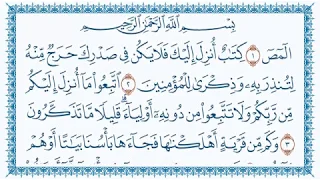 بِسْمِ اللَّهِ الرَّحْمَٰنِ الرَّحِيمِ
الٓمٓصٓ ۝١ كِتَٰبٌ أُنزِلَ إِلَيْكَ فَلَا يَكُن فِى صَدْرِكَ حَرَجٌ مِّنْهُ
لِتُنذِرَ بِهِۦ وَذِكْرَىٰ لِلْمُؤْمِنِينَ ۝٢ ٱتَّبِعُوا۟ مَآ أُنزِلَ إِلَيْكُم
مِّن رَّبِّكُمْ وَلَا تَتَّبِعُوا۟ مِن دُونِهِۦٓ أَوْلِيَآءَ ۗ قَلِيلًا مَّا تَذَكَّرُونَ
۝٣ وَكَم مِّن قَرْيَةٍ أَهْلَكْنَٰهَا فَجَآءَهَا بَأْسُنَا بَيَٰتًا أَوْ هُمْ